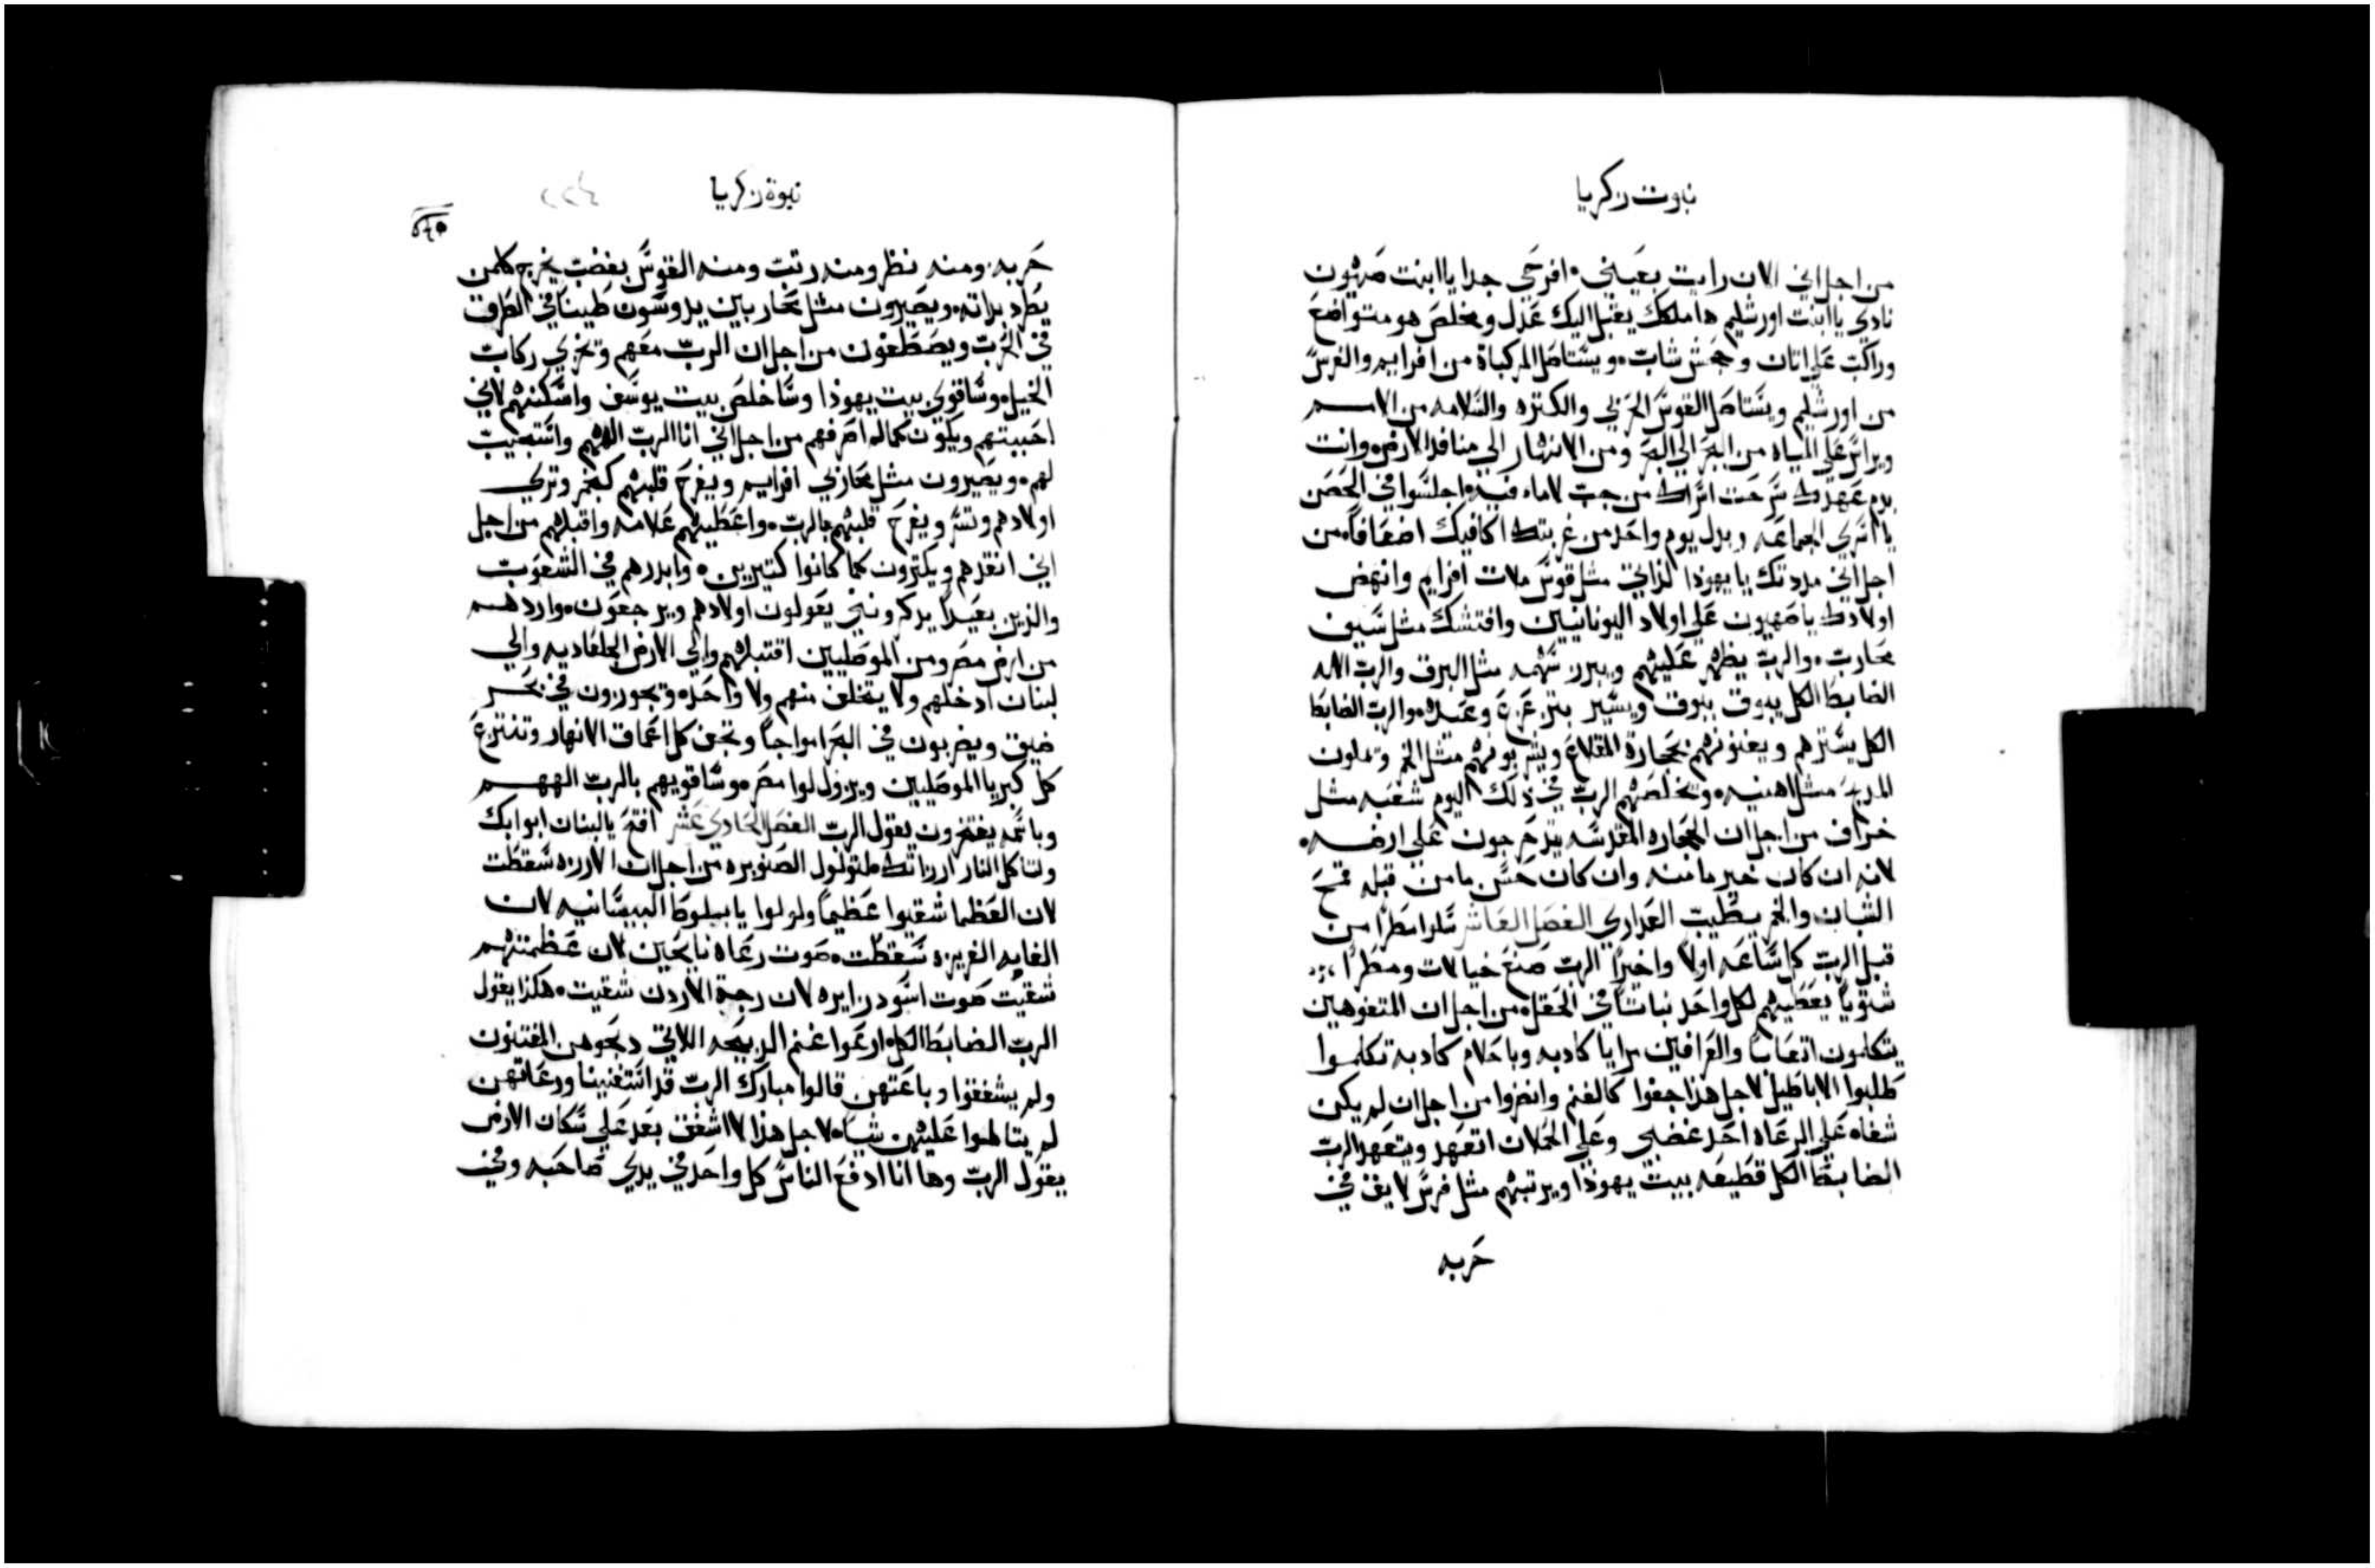 نبوت زكريا
من اجل اني الان رايت بعيني افرحي جدا يا ابنت صهيون
نادي يا ابنت اورشليم ها ملكك يقبل اليك عدل ومخلص هو متواضع
وراكب علي اتان وجحش شاب ويستاصل المركباة من افرايم والفرس
من اورشليم ويستاصل القوس الحربي والكتره والسلامه من الامم
ويراس علي المياه من البحر الي البحر ومن الانهار الي منافد الارض وانت
بدم عهدك سرحت اسراك من جب لا ماء فيه اجلسوا في الحصن
يا اسري الجماعه وبدل يوم واحد من غربتك اكافيك اضعافا من
اجل اني مددتك يا يهوذا لذاتي مثل قوس ملات افرايم وانهض
اولادك يا صهيون علي اولاد اليونانيين وافتشك مثل سيف
محارب والرب يظهر عليهم ويبرز سهمه مثل البرق والرب الاله
الضابط الكل يبوق ببوق ويسير بتزعزع وعيده والرب الضابط
الكل يسترهم ويفنونهم بحجارة المقلاع ويشربونهم مثل الخمر وتملون
المدبح مثل اهنيه ويخلصهم الرب في ذلك اليوم شعبه مثل
خراف من اجل ان الحجاره المقدسه يتدحرجون علي ارضه
لانه ان كان خير ما منه وان كان حسن ما من قبله قمح
الشبان والخمر يطيب العداري الفصل العاشر سلوا مطرا من
قبل الرب كل ساعه اولا واخيرا الرب صنع خيالات ومطرا
شتويا يعطيهم لكل واحد نباتا في الحقل من اجل ان المتفوهين
يتكلمون اتعابا والعرافين برايا كادبه وباحلام كادبة تكلموا
طلبوا الاباطيل لاجل هذا جفوا كالغنم وانضروا من اجل ان لم يكن
شفاه علي الرعاه احتد غضبي وعلي الحملان اتعهد ويتعهد الرب
الضابط الكل قطيعه بيت يهوذا ويرتبهم مثل فرس لايق في
حربه
نبوة زكريا
حربه ومنه نظر ومنه رتب ومنه القوس بغضب يخرج كل من
يطرد بداته ويصيرون مثل محاربين يدوسون طينا في الطرق
في الحرب ويصطفون من اجل ان الرب معهم وتخزي ركاب
الخيل وساقوي بيت يهوذا وساخلص بيت يوسف واسكنهم لاني
احببتهم ويكون كما لم اصرفهم من اجل اني انا الرب الاههم واستجيب
لهم ويصيرون مثل محاربي افرايم ويفرح قلبهم كبخمر وتري
اولادهم وتسر ويفرح قلبهم بالرب واعطيهم علامه واقبلهم من اجل
اني انقدهم ويكترون كما كانوا كتيرين وابدرهم في الشعوب
والذين بعيدا يدكرونني يعولون اولادهم ويرجعون واردهم
من ارض مصر ومن الموصليين اقتبلهم والي الارض الجلعاديه والي
لبنان ادخلهم ولا يتخلف منهم ولا واحد ويجوزون في بحر
ضيق ويضربون في البحر امواجا وتجف كل اعماق الانهار وتنتزع
كل كبريا الموصليين ويزولوا مصر وساقويهم بالرب الههم
وباسمه يفتخرون يقول الرب الفصل الحادي عشر افتح يا لبنان ابوابك
وتاكل النار ارزاتك ملتولول الصنوبره من اجل ان الارزه سقطت
لان العظما شقيوا عظيما ولولوا يا بلوط البيسانيه لان
الغابه الغريزه سقطت صوت رعاه نايحين لان عظمتهم
شقيت صوت اسود زايره لان رجة الاردن شقيت هكذا يقول
الرب الضابط الكل ارعوا غنم الدبيحه اللاتي دبحوهن المقتنون
ولم يشفقوا وباعتهن قالوا مبارك الرب قد استغنينا ورعاتهن
لم يتالموا عليهن شيا لاجل هذا لا اشفق بعد علي سكان الارض
يقول الرب وها انا ادفع الناس كل واحد في يدي صاحبه وفي